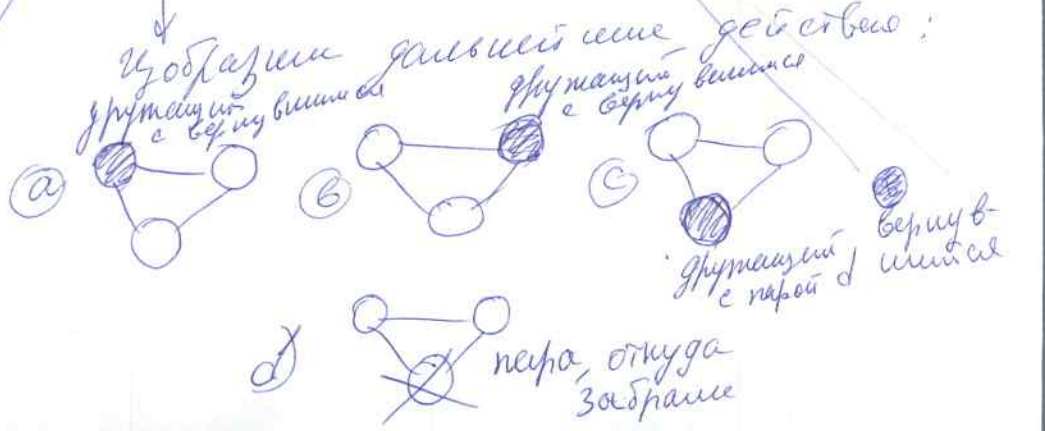 Изобразим дальнейшие действия:
дружащий
с вернувшимся
дружащий
с вернувшимся
a
b
c
дружащий
с парой d
вернув-
шийся
d
пара, откуда
забрали